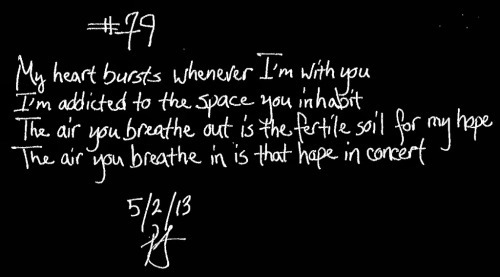 #79
My heart bursts whenever I'm with you
I'm addicted to the space you inhabit
The air you breathe out is the fertile soil for my hope
The air you breathe in is that hope in concert
5/2/13